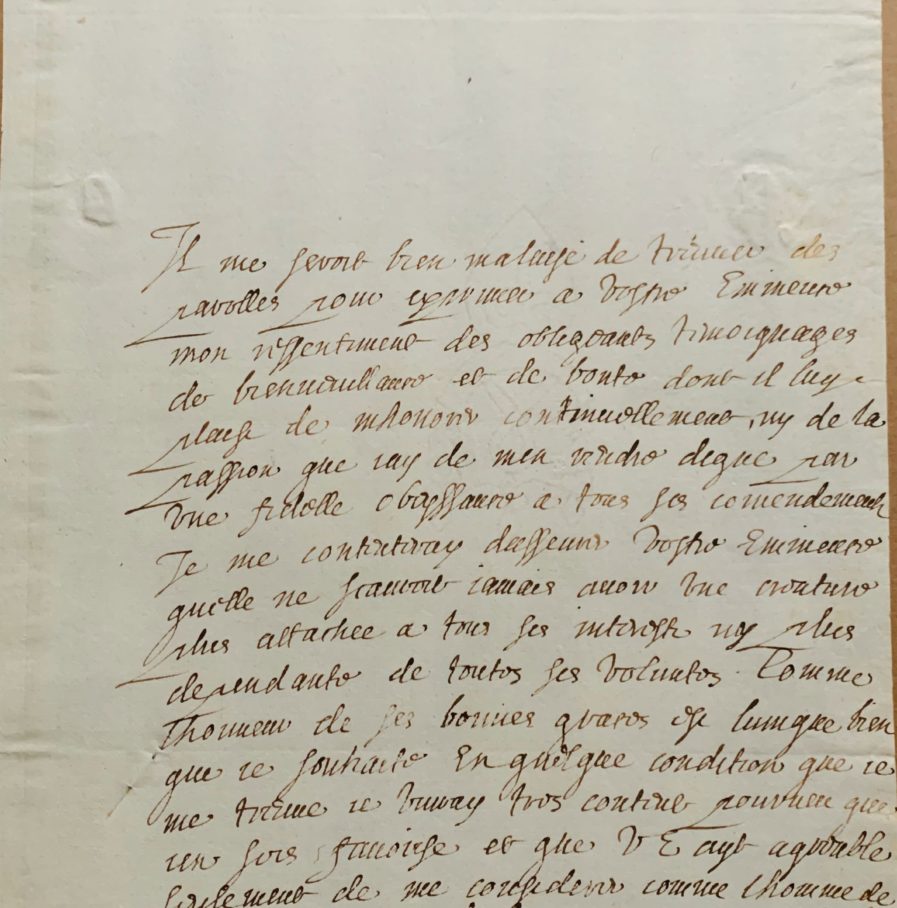 Il me seroit bien malaisé de treuuer des
parolles pour exprimer a Vostre Eminence
mon ressentiment des obligeants temoignages
de bienueullance et de bonté dont il luy
plaist de mhonorer continuellement, ny de la
passion que iay de men rendre digne par
vne fidelle obeyssance a tous ses comendements
Je me contenteray dasseurer Vostre Eminence
quelle ne scauroit iamais auoir vne creature
plus attachee a tous ses interests ny plus
dependante de toutes ses volontes. Comme
lhonneur de ses bonnes graces est lunique bien
que ie souhaite En quelque condition que ie
me treuue ie viuray tres content pourueu que
ien sois fauorise et que V E ayt agreable
seulement de me considerer comme lhomme de